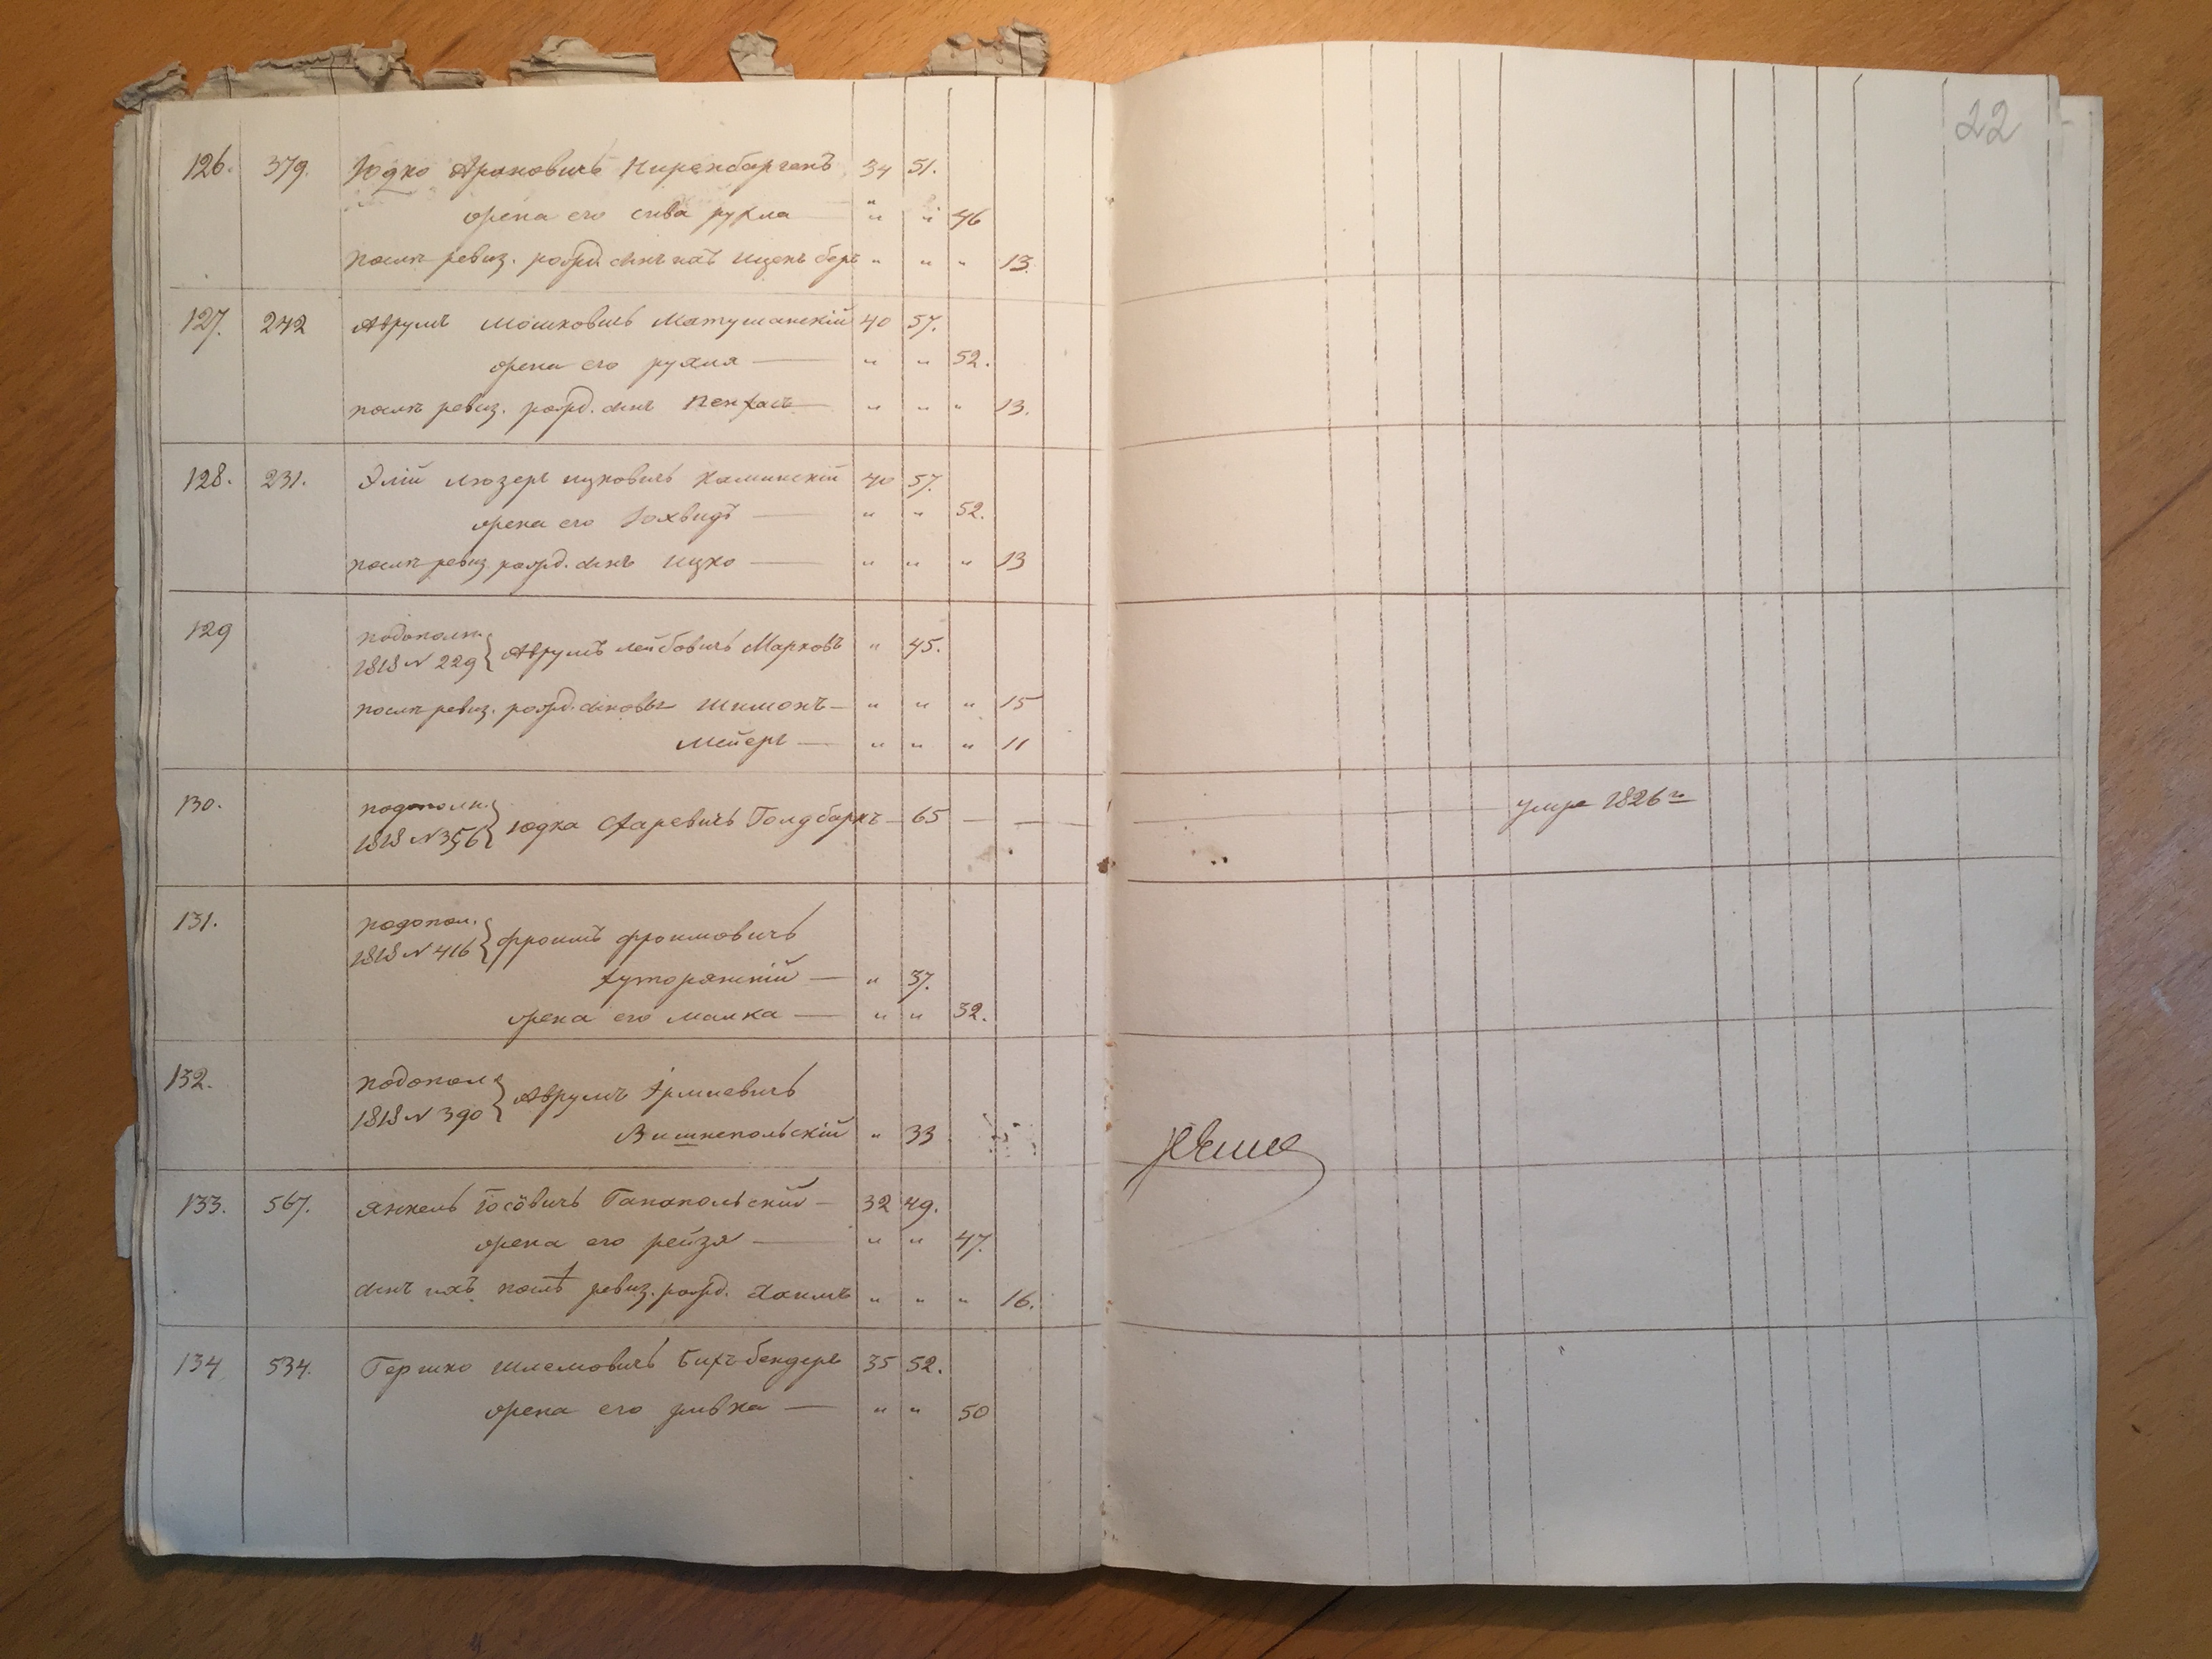 22
126. 379. Юдко Ароновичъ Ниренбаргенъ 34 51.
жена его сива рухла — " " 46
послѣ ревиз. рожд. сынъ ихъ ицень беръ " " " 13.
127. 242 Аврумъ Мошковичъ Матушанскій 40 57.
жена его рухля — " " 52.
послѣ ревиз. рожд. сынъ Пенхасъ — " " " 13.
128. 231. Элій Люзеръ ицковичъ Каминскій 40 57.
жена его Іохвидъ — " " 52.
послѣ ревиз. рожд. сынъ ицко — " " " 13
129 подополн.
1818 N 229 } Аврумъ лейбовичъ Марковъ " 45.
послѣ ревиз. рожд. сыновья Шимонъ — " " " 15
Мейеръ — " " " 11
130. подополн.
1818 N 356 } юдка Старевичъ Голдбаркъ — 65 — — умре 1826го
131. подопол.
1818 N 416 } фроимъ фроимовичъ
хуторянскій — " 37.
жена его малка — " " 32.
132. подопол
1818 N 390 } Аврумъ Ірмиевичъ
Вишнепольскій " 33
133. 567. Янкель Іосіовичъ Ганапольскій — 32 49.
жена его рейзя — " " 47.
сынъ ихъ послѣ ревиз. рожд. Хаимъ " " " 16.
134 534. Гершко шлемовичъ Бихъ-бендеръ 35 52.
жена его ривка — " " 50